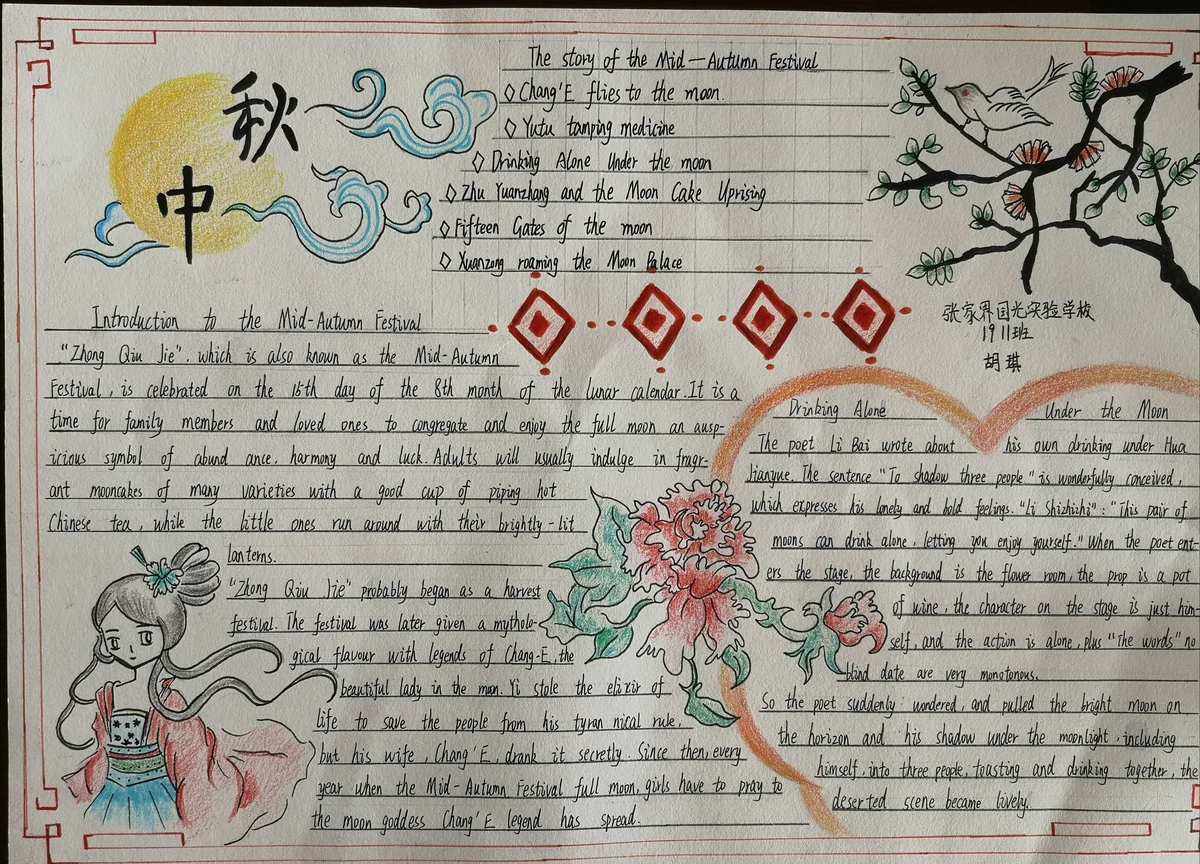 中
秋
The story of the Mid-Autumn Festival
◇ Chang'E flies to the moon.
◇ Yutu tamping medicine
◇ Drinking Alone Under the moon
◇ Zhu Yuanzhang and the Moon Cake Uprising
◇ Fifteen Gates of the moon
◇ Xuanzong roaming the Moon Palace
张家界国光实验学校
1911班
胡琪
Introduction to the Mid-Autumn Festival
"Zhong Qiu Jie". which is also known as the Mid-Autumn
Festival, is celebrated on the 15th day of the 8th month of the lunar calendar.It is a
time for family members and loved ones to congregate and enjoy the full moon an ausp-
icious symbol of abund ance. harmony and luck. Adults will usually indulge in fragr-
ant mooncakes of many varieties with a good cup of piping hot
Chinese tea, while the little ones run around with their brightly-lit
lanterns.
"Zhong Qiu Jie" probably began as a harvest
festival. The festival was later given a mytholo-
gical flavour with legends of Chang-E, the
beautiful lady in the mon. Yi stole the elixir of
life to save the people from his tyran nical rule,
but his wife, Chang'E, drank it secretly. Since then, every
year when the Mid-Autumn Festival full moon, girls have to pray to
the moon goddess Chang'E legend has spread.
Drinking Alone Under the Moon
The poet Li Bai wrote about his own drinking under Hua
Jianyue. The sentence "To shadow three people" is wonderfully conceived,
which expresses his lonely and bold feelings. "Li Shizhizhi": "This pair of
moons can drink alone, letting you enjoy yourself." When the poet ent-
ers the stage, the background is the flower room, the prop is a pot
of wine, the character on the stage is just him-
self, and the action is alone, plus "the words" no
blind date are very monotonous.
So the poet suddenly wondered, and pulled the bright moon on
the horizon and his shadow under the moonlight, including
himself, into three people, toasting and drinking together, the
deserted scene became lively.